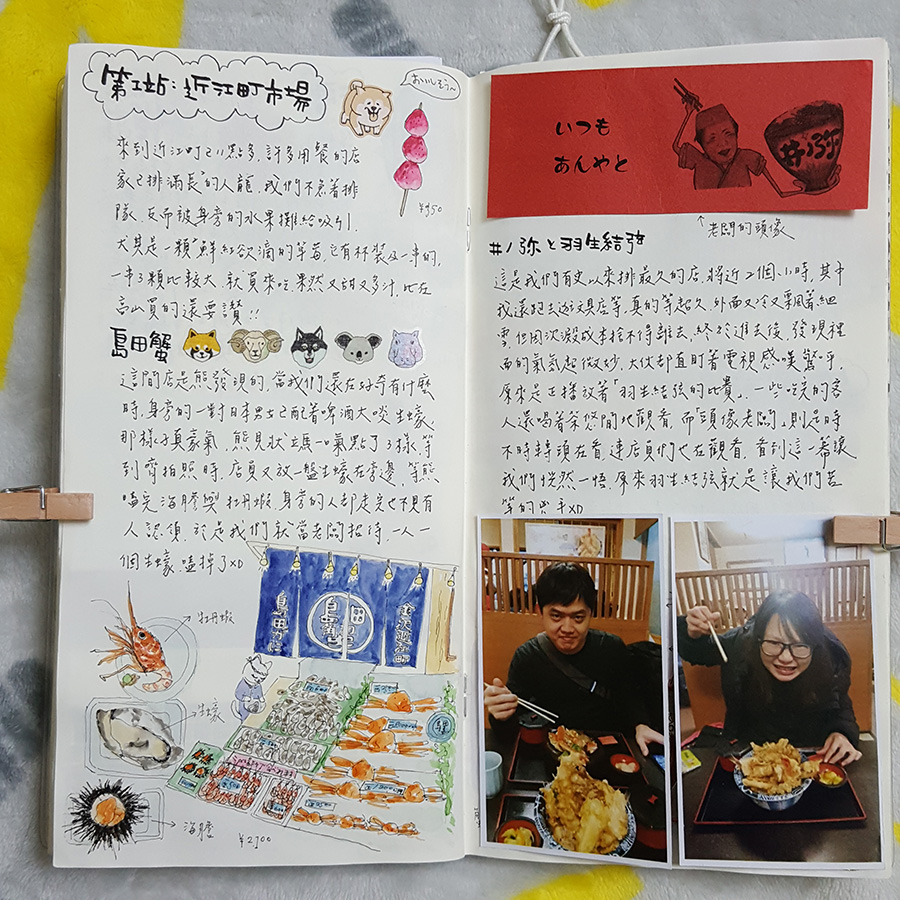 第1站:近江町市場
おいしそう~
來到近江町已11點多,許多用餐的店
家已排滿長長的人龍,我們不急著排
隊,反而被身旁的水果攤給吸引,
尤其是一顆顆鮮紅欲滴的草莓,已有杯裝及一串的,
一串3顆比較大,就買來吃,果然又甜又多汁,比在
高山買的還要讚!!
¥350
島田蟹
這間店是熊發現的,當我們還在好奇有什麼
時,身旁的一對日本男士已配著啤酒大啖生蠔,
那樣子真豪氣,熊見狀立馬一口氣點了3樣,等
到齊拍照時,店員又放一盤生蠔在旁邊,等熊
嗑完海膽與牡丹蝦,身旁的人都走完也不見有
人認領,於是我們就當老闆招待,一人一
個生蠔嗑掉了XD
牡丹蝦
生蠔
海膽
¥2,700
島田かに
いつも
あんやと
丼弥
↑老闆的頭像
#丼弥と羽生結弦
這是我們有史以來排最久的店,將近2個小時,其中
我還跑去逛文具店等,真的等超久,外面又冷又飄著細
雪,但因次澱成本捨不得離去,終於進去後,發現裡
面的氣氛超微妙,大伙都直盯著電視感嘆驚呼,
原來是正播放著「羽生結弦的比賽」,一些吃完的客
人還喝著茶悠閒地觀看,而「頭像老闆」則是時
不時轉頭在看,連店員們也在觀看,看到這一幕讓
我們恍然一悟,原來羽生結弦就是讓我們苦
等的兇手XD